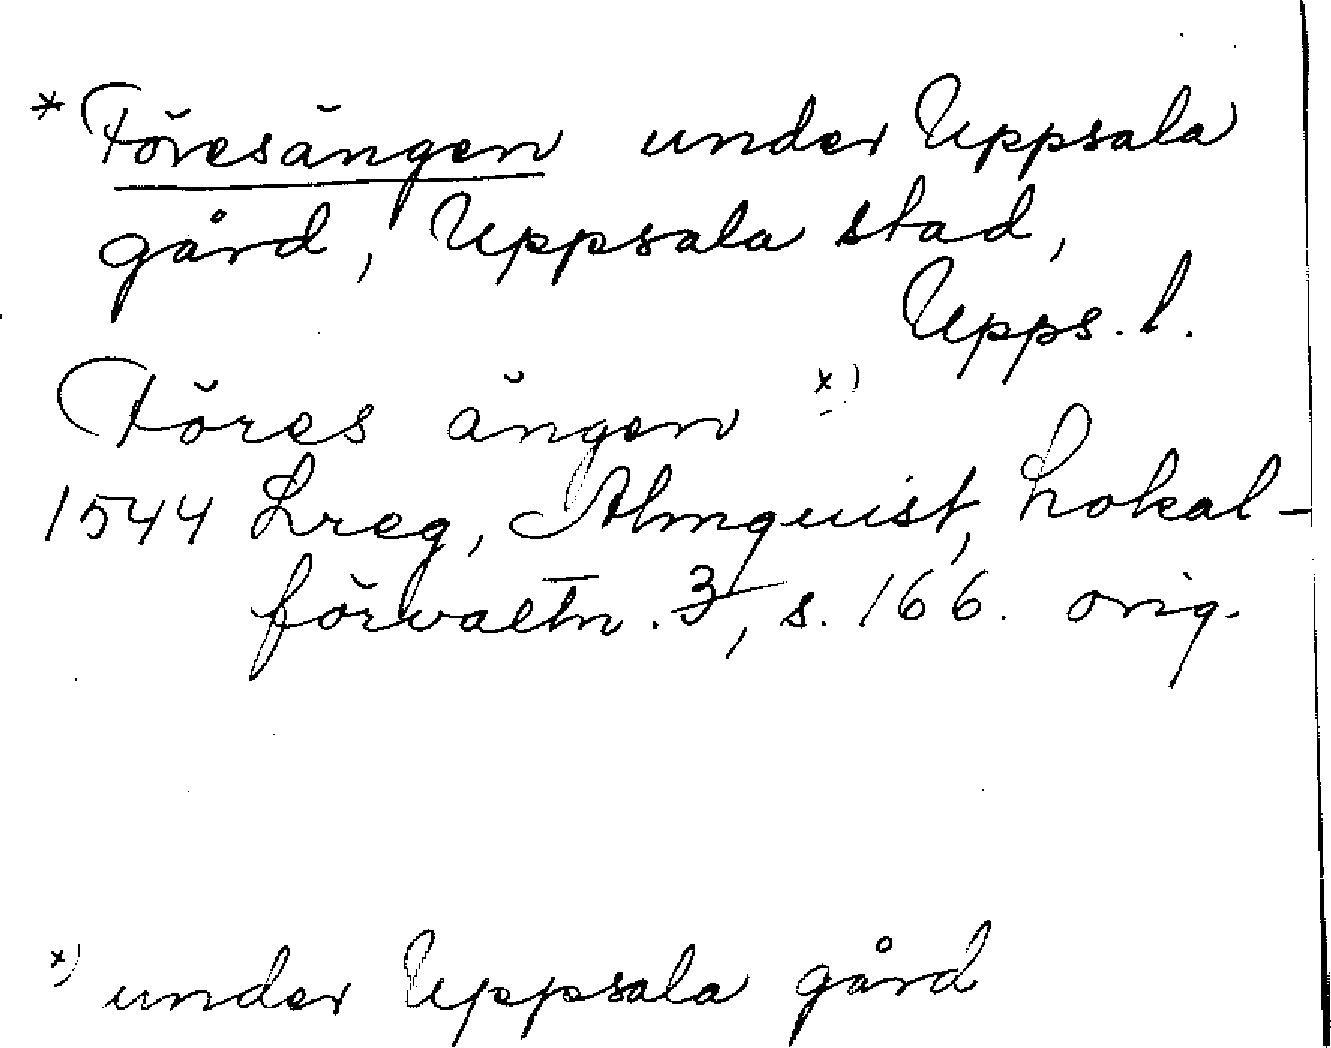 * Föresängen under Uppsala
gård, Uppsala stad,
Upps. l.
Föres ängen x)
1544 Lreg, Almquist, Lokal-
förvaltn. 3, s. 166. orig.
x) under Uppsala gård